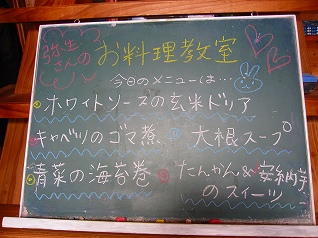 弥生さんの
お料理教室
今日のメニューは…
ホワイトソースの玄米ドリア
キャベツのゴマ煮
大根スープ
青菜の海苔巻
たんかん&安納芋
のスイーツ